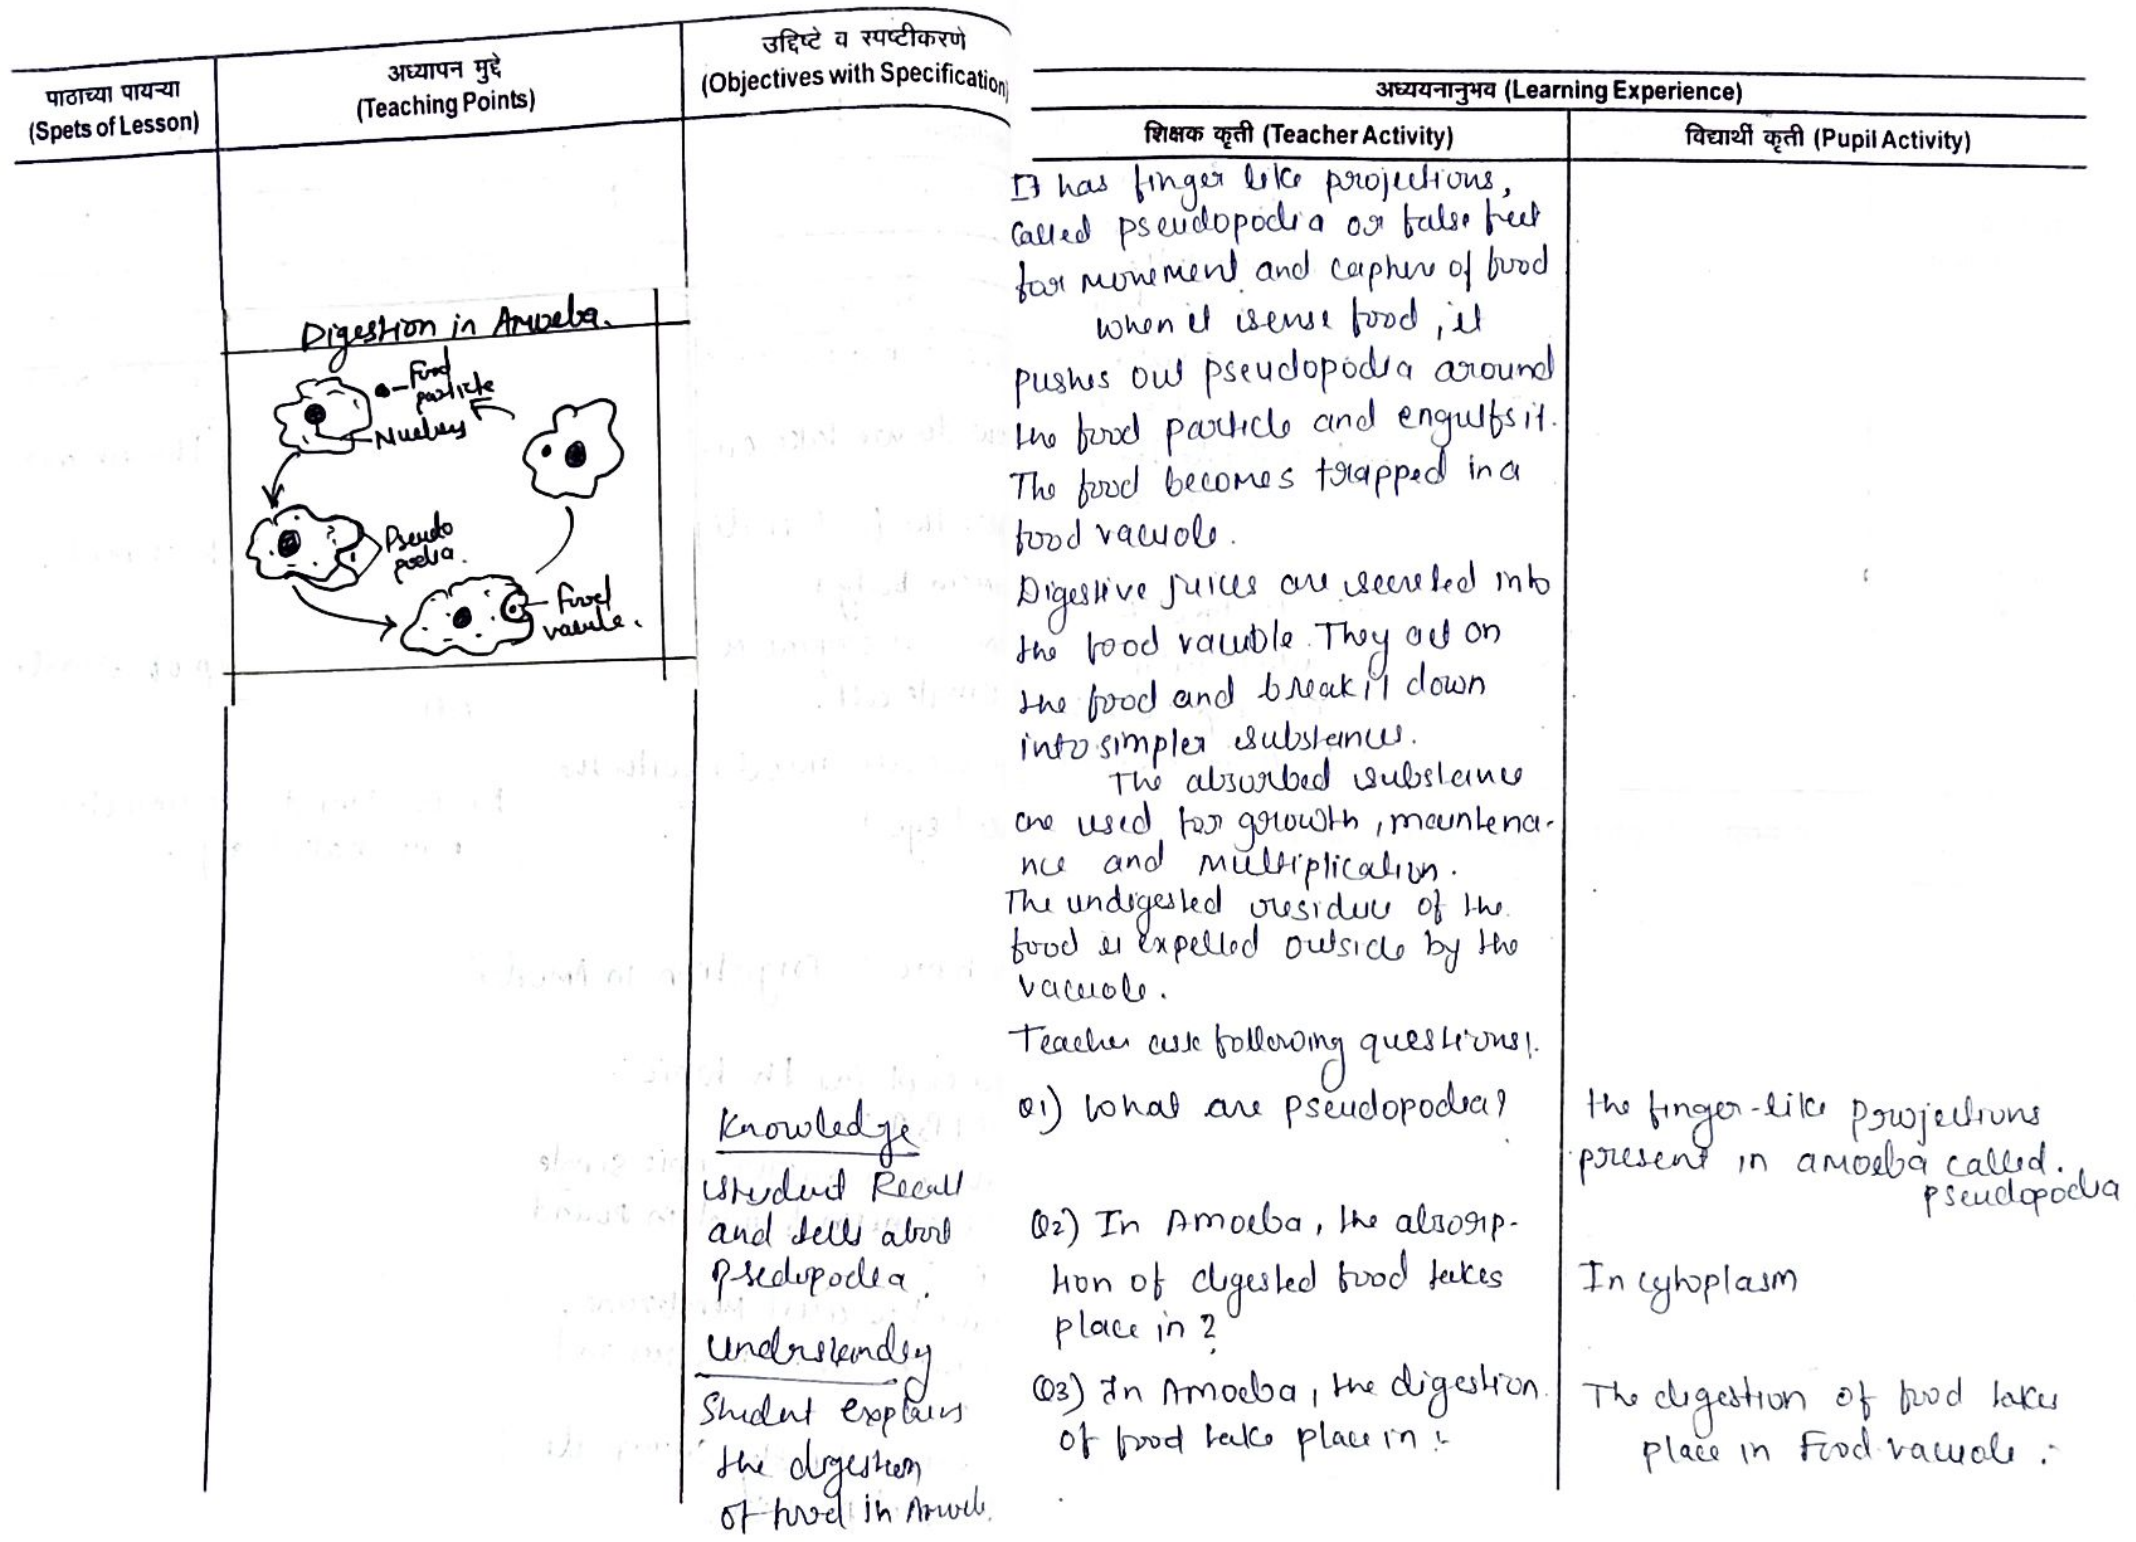 पाठाच्या पायऱ्या
(Spets of Lesson)
अध्यापन मुद्दे
(Teaching Points)
उद्दिष्टे व स्पष्टीकरणे
(Objectives with Specification)
अध्ययनानुभव (Learning Experience)
शिक्षक कृती (Teacher Activity)
विद्यार्थी कृती (Pupil Activity)
Digestion in Amoeba.
Food
particle
Nucleus
Pseudo
podia.
Food
vacuole.
Knowledge
Student Recall
and tells about
Psedopodia.
Understanding
Student explains
the digestion
of food in Amoeb.
It has finger like projections,
Called pseudopodia or false feet
for movement and capture of food
when it sense food, it
pushes out pseudopodia around
the food particle and engulfs it.
The food becomes trapped in a
food vacuole.
Digestive juices are secreted into
the food vacuole. They act on
the food and break it down
into simpler substances.
The absorbed substance
are used for growth, maintena-
nce and multiplication.
The undigested residue of the
food is expelled outside by the
vacuole.
Teacher ask following questions!.
Q1) What are pseudopodia?
the finger-like projections
present in amoeba called.
pseudopodia
Q2) In Amoeba, the absorp-
tion of digested food takes
place in?
In cytoplasm
Q3) In Amoeba, the digestion
of food take place in :-
The digestion of food takes
place in Food vacuole :-